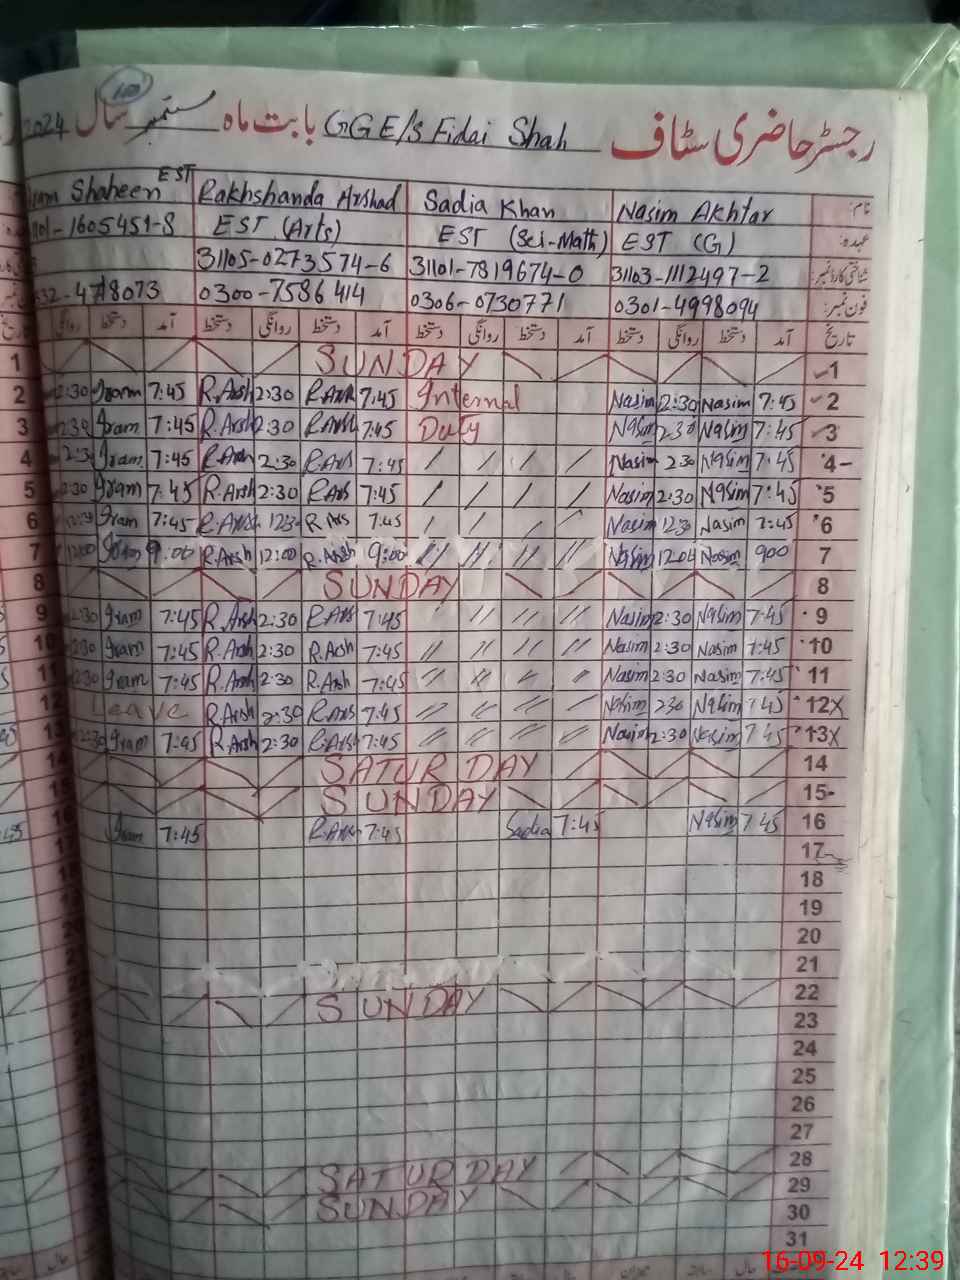 رجسٹر حاضری سٹاف GGE/s Fidai Shah بابت ماہ ستمبر سال 2024
Shaheen EST Rakhshanda Arshad Sadia Khan Nasim Akhtar نام:
1605451-8 EST (Arts) EST (Sci-Math) EST (G) عہدہ:
31105-0273574-6 31101-7819674-0 31103-1112497-2 شناختی کارڈ نمبر:
0300-7586414 0306-0730771 0301-4998094 فون نمبر:
روانگی دستخط آمد دستخط روانگی دستخط آمد دستخط روانگی دستخط آمد دستخط روانگی دستخط آمد تاریخ
1 SUNDAY 1
2 2:30 Iram 7:45 R.Arsh 2:30 R.Arsh 7:45 Internal Nasim 2:30 Nasim 7:45 2
3 2:30 Iram 7:45 R.Arsh 2:30 R.Arsh 7:45 Duty Nasim 2:30 Nasim 7:45 3
4 2:30 Iram 7:45 R.Arsh 2:30 R.Ars 7:45 / / / / Nasim 2:30 Nasim 7:45 4
5 2:30 Iram 7:45 R.Arsh 2:30 R.Ars 7:45 / / / / Nasim 2:30 Nasim 7:45 5
6 12:30 Iram 7:45 R.Arsh 12:30 R.Ars 7:45 / / / / Nasim 12:30 Nasim 7:45 6
7 12:00 Iram 9:00 R.Arsh 12:00 R.Arsh 9:00 // // // // Nasim 12:04 Nasim 900 7
8 SUNDAY 8
9 2:30 Iram 7:45 R.Arsh 2:30 R.Ars 7:45 // // // Nasim 2:30 Nasim 7:45 9
10 2:30 Iram 7:45 R.Arsh 2:30 R.Arsh 7:45 // // // // Nasim 2:30 Nasim 7:45 10
11 2:30 Iram 7:45 R.Arsh 2:30 R.Arsh 7:45 // // // // Nasim 2:30 Nasim 7:45 11
12 Leave R.Arsh 2:30 R.Ars 7:45 // // // // Nasim 2:30 Nasim 7:45 12x
13 2:30 Iram 7:45 R.Arsh 2:30 R.Arsh 7:45 // // // // Nasim 2:30 Nasim 7:45 13x
14 SATURDAY 14
15 SUNDAY 15
16 Iram 7:45 R.Ars 7:45 Sadia 7:45 Nasim 7:45 16
17
18
19
20
21
SUNDAY 22
23
24
25
26
27
SATURDAY 28
SUNDAY 29
30
31
16-09-24 12:39